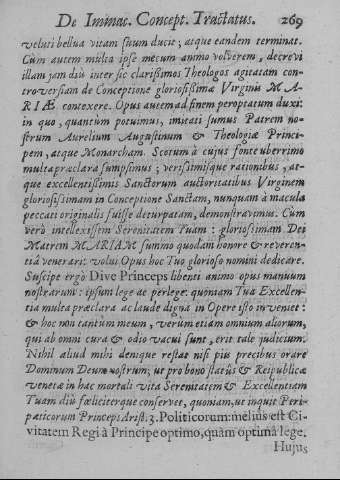 De Immac. Concept. Tractatus. 269
veluti bellua vitam suum ducit; atque eandem terminat.
Cùm autem multa ipse mecum animo volverem, decrevi
illam jam diù inter sic clarissimos Theologos agitatam con-
troversiam de Conceptione gloriosissima Virginis MA-
RIÆ contexere. Opus autem ad finem peroptatum duxi:
in quo, quantùm potuimus, imitati sumus Patrem no-
strum Aurelium Augustinum & Theologiæ Princi-
pem, atque Monarcham. Scotum à cujus fonte uberrimo
multa præclara sumpsimus; verissimisque rationibus, at-
que excellentissimis Sanctorum auctoritatibus Virginem
gloriosissimam in Conceptione Sanctam, nunquam à macula
peccati originalis fuisse deturpatam, demonstravimus. Cùm
verò intellexissem Serenitatem Tuam: gloriosissimam Dei
Matrem MARIAM summo quodam honore & reveren-
tiâ venerari: volui Opus hoc Tuo glorioso nomini dedicare.
Suscipe ergò Dive Princeps libenti animo opus manuum
nostrarum: ipsum lege ac perlege: quoniam Tua Excellen-
tia multa præclara ac laude digna in Opere isto inveniet:
& hoc non tantùm meum, verùm etiam omnium aliorum,
qui ab omni cura & odio vacui sunt, erit tale judicium.
Nihil aliud mihi denique restat nisi piis precibus orare
Dominum Deum nostrum; ut pro bono statûs & Reipublicæ
venetæ in hac mortali vita Serenitatem & Excellentiam
Tuam diù fœliciterque conservet, quoniam, ut inquit Peri-
patticorum Princeps Arist. 3. Politicorum: melius est Ci-
vitatem Regi à Principe optimo, quàm optimâ lege.
Hujus